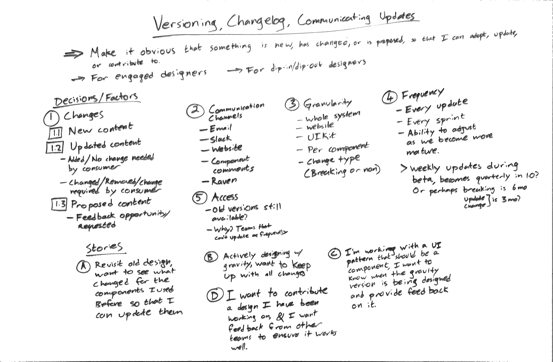 Versioning, Changelog, Communicating Updates
Make it obvious that something is new, has changed, or is proposed, so that I can adopt, update,
or contribute to.
For engaged designers → For dip-in/dip-out designers
Decisions/Factors
1 Changes
1.1 New content
1.2 Updated content
- Added/No change needed
by consumer
- Changed/Removed/change
required by consumer
1.3 Proposed content
- Feedback opportunity/
requested
2 Communication
Channels
- Email
- Slack
- Website
- Component
comments
- Raven
5 Access
- Old versions still
available?
- Why? Teams that
can't update as frequently
3 Granularity
- Whole system
- Website
- UI Kit
- Per component
- Change type
(Breaking or non)
4 Frequency
- Every update
- Every sprint
- Ability to adjust
as we become more
mature.
> Weekly updates during
beta, becomes quarterly in 1.0?
Or perhaps breaking is 6mo
update
change } is 3mo?
Stories
A Revisit old design,
want to see what
changed for the
components I used
Before so that I
can update them
B Actively designing w/
gravity, want to keep
up with all changes
D I want to contribute
a design I have been
working on & I want
feedback from other
teams to ensure it works
well.
C I'm working with a UI
pattern that should be a
component, I want to
know when the gravity
version is being designed
and provide feedback
on it.